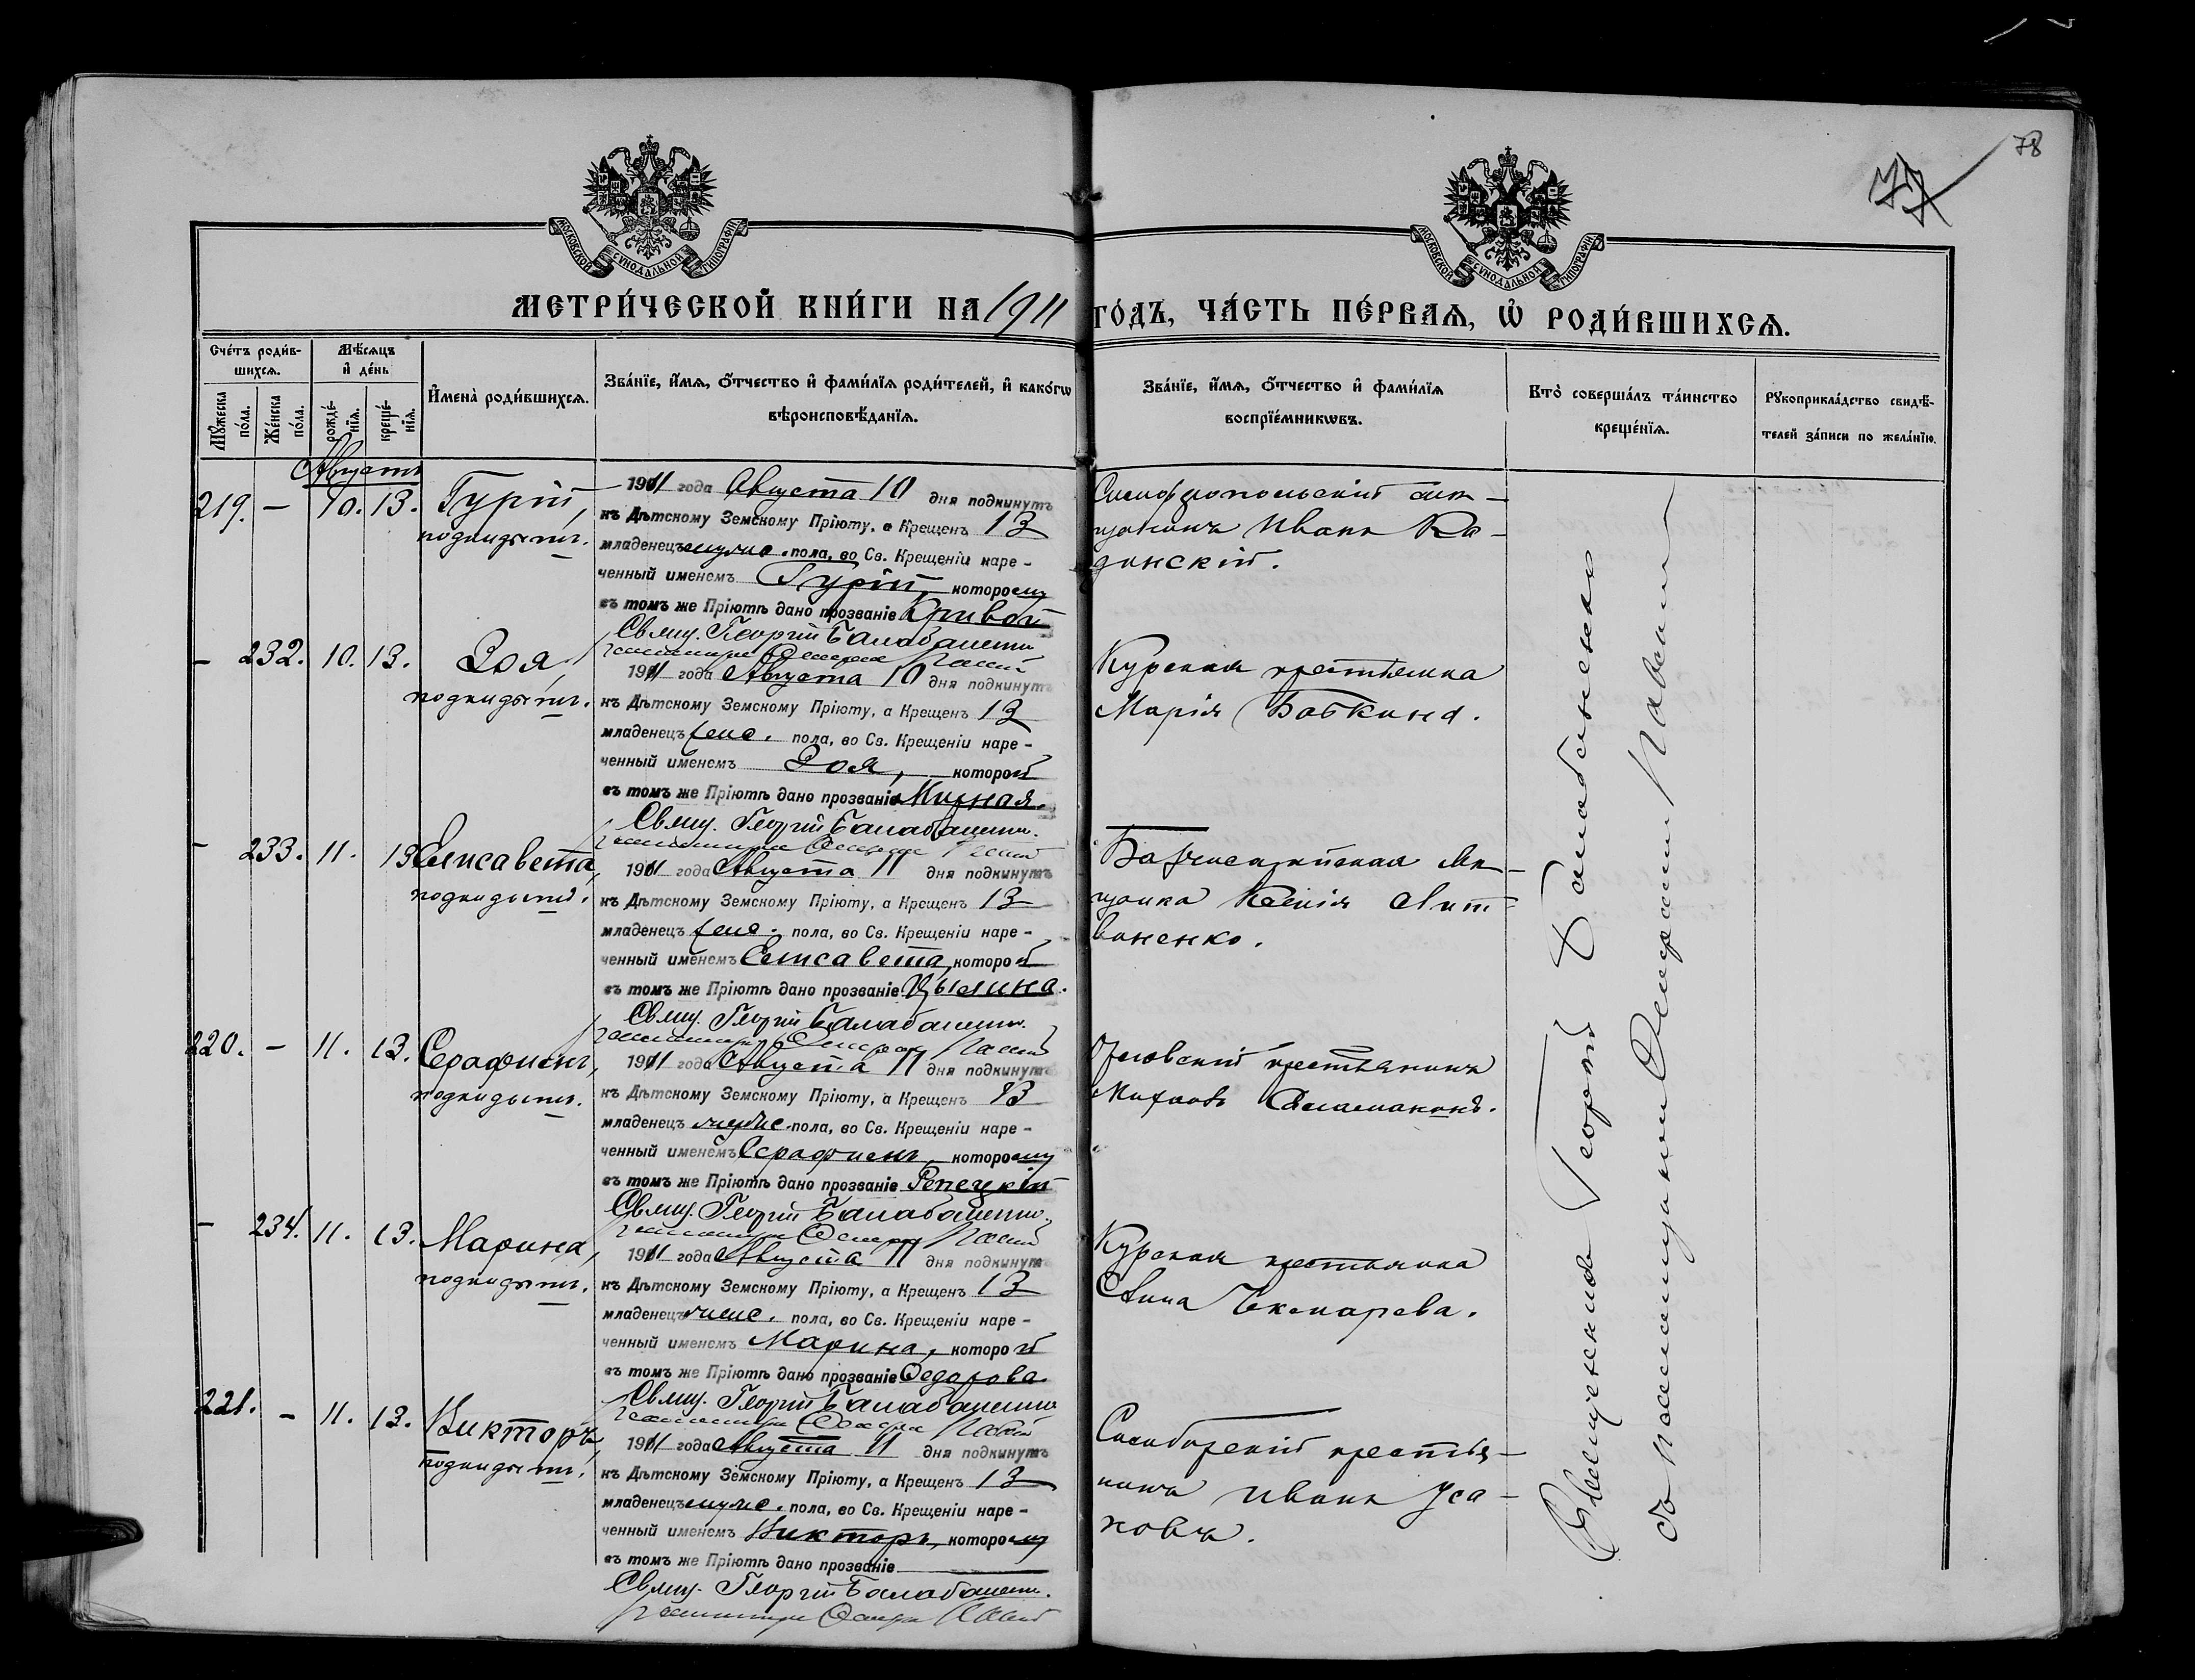 78
77
МОСКОВСКОЙ СѴНОДАЛЬНОЙ ТИПОГРАФІИ
МОСКОВСКОЙ СѴНОДАЛЬНОЙ ТИПОГРАФІИ
МЕТРИ́ЧЕСКОЙ КНИ́ГИ НА 1911 ГО́ДЪ, ЧА́СТЬ ПЕ́РВАЯ, Ѡ҆ РОДИ́ВШИХСЯ.
Сче́тъ роди́в-
шихся.
Мѣ́сяцъ
и҆ де́нь
Мꙋ́жеска по́ла.
Же́нска по́ла.
рожде́-
нїя.
креще́-
нїя.
И҆мена̀ роди́вшихся.
Зва́нїе, и҆́мя, ѻ҆́тчество и҆ фами́лїя роди́телей, и҆ како́гѡ
вѣроисповѣ́данїя.
Зва́нїе, и҆́мя, ѻ҆́тчество и҆ фами́лїя
воспрїе́мникѡвъ.
Кто̀ соверша́лъ та́инство
креще́нїя.
Рꙋкоприкла́дство свидѣ́-
телей за́писи по жела́нїю.
Августъ
219. – 10. 13. Гурій,
подкидышъ.
1911 года Августа 10 дня подкинутъ
къ Дѣтскому Земскому Пріюту, а Крещенъ 13
младенецъ муже. пола, во Св. Крещеніи наре-
ченный именемъ Гурій, которому
въ томъ же Пріютѣ дано прозваніе Кривой
Свящ. Георгій Балабаненко
Симферопольскій мѣ-
щанинъ Иванъ Ка-
динскій.
– 232. 10. 13. Зоя,
подкидышъ.
1911 года Августа 10 дня подкинутъ
къ Дѣтскому Земскому Пріюту, а Крещенъ 13
младенецъ жене. пола, во Св. Крещеніи наре-
ченный именемъ Зоя, которой
въ томъ же Пріютѣ дано прозваніе Мирная.
Свящ. Георгій Балабаненко.
Курская крестьянка
Марія Бабкина.
– 233. 11. 13 Елисавета,
подкидышъ.
1911 года Августа 11 дня подкинутъ
къ Дѣтскому Земскому Пріюту, а Крещенъ 13
младенецъ жене. пола, во Св. Крещеніи наре-
ченный именемъ Елисавета, которой
въ томъ же Пріютѣ дано прозваніе Цылина.
Свящ. Георгій Балабаненко.
Бахчисарайская мѣ-
щанка Ксенія Лит-
виненко.
220. – 11. 13. Серафимъ,
подкидышъ.
1911 года Августа 11 дня подкинутъ
къ Дѣтскому Земскому Пріюту, а Крещенъ 13
младенецъ муже. пола, во Св. Крещеніи наре-
ченный именемъ Серафимъ, которому
въ томъ же Пріютѣ дано прозваніе Репецкій
Свящ. Георгій Балабаненко.
Орловскій крестьянинъ
– 234. 11. 13. Марина,
подкидышъ.
1911 года Августа 11 дня подкинутъ
къ Дѣтскому Земскому Пріюту, а Крещенъ 13
младенецъ жене. пола, во Св. Крещеніи наре-
ченный именемъ Марина, которой
въ томъ же Пріютѣ дано прозваніе Федорова
Свящ. Георгій Балабаненко
Курская крестьянка
Анна Чекмарева.
221. – 11. 13. Викторъ,
подкидышъ.
1911 года Августа 11 дня подкинутъ
къ Дѣтскому Земскому Пріюту, а Крещенъ 13
младенецъ муже. пола, во Св. Крещеніи наре-
ченный именемъ Викторъ, которому
въ томъ же Пріютѣ дано прозваніе
Свящ. Георгій Балабаненко.
Симбирскій крестья-
нинъ Иванъ Уса-
ковъ.
Священникъ Георгій Балабаненко
съ псаломщикомъ